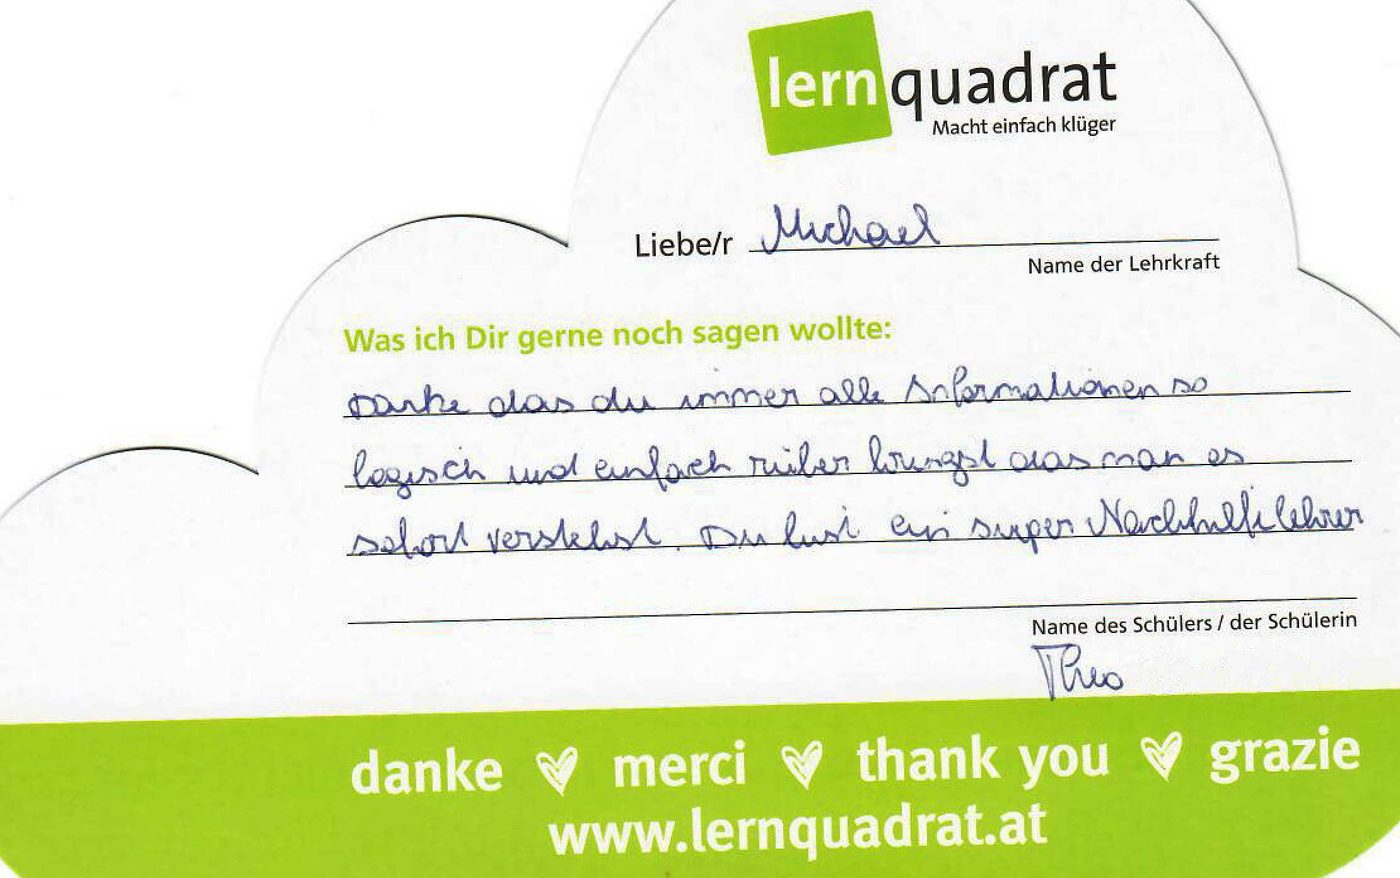 lernquadrat
Macht einfach klüger
Liebe/r Michael
Name der Lehrkraft
Was ich Dir gerne noch sagen wollte:
Danke das du immer alle Informationen so
logisch und einfach rüber bringst das man es
sofort verstehst. Du bist ein super Nachhilfelehrer
Name des Schülers / der Schülerin
Theo
danke merci thank you grazie
www.lernquadrat.at